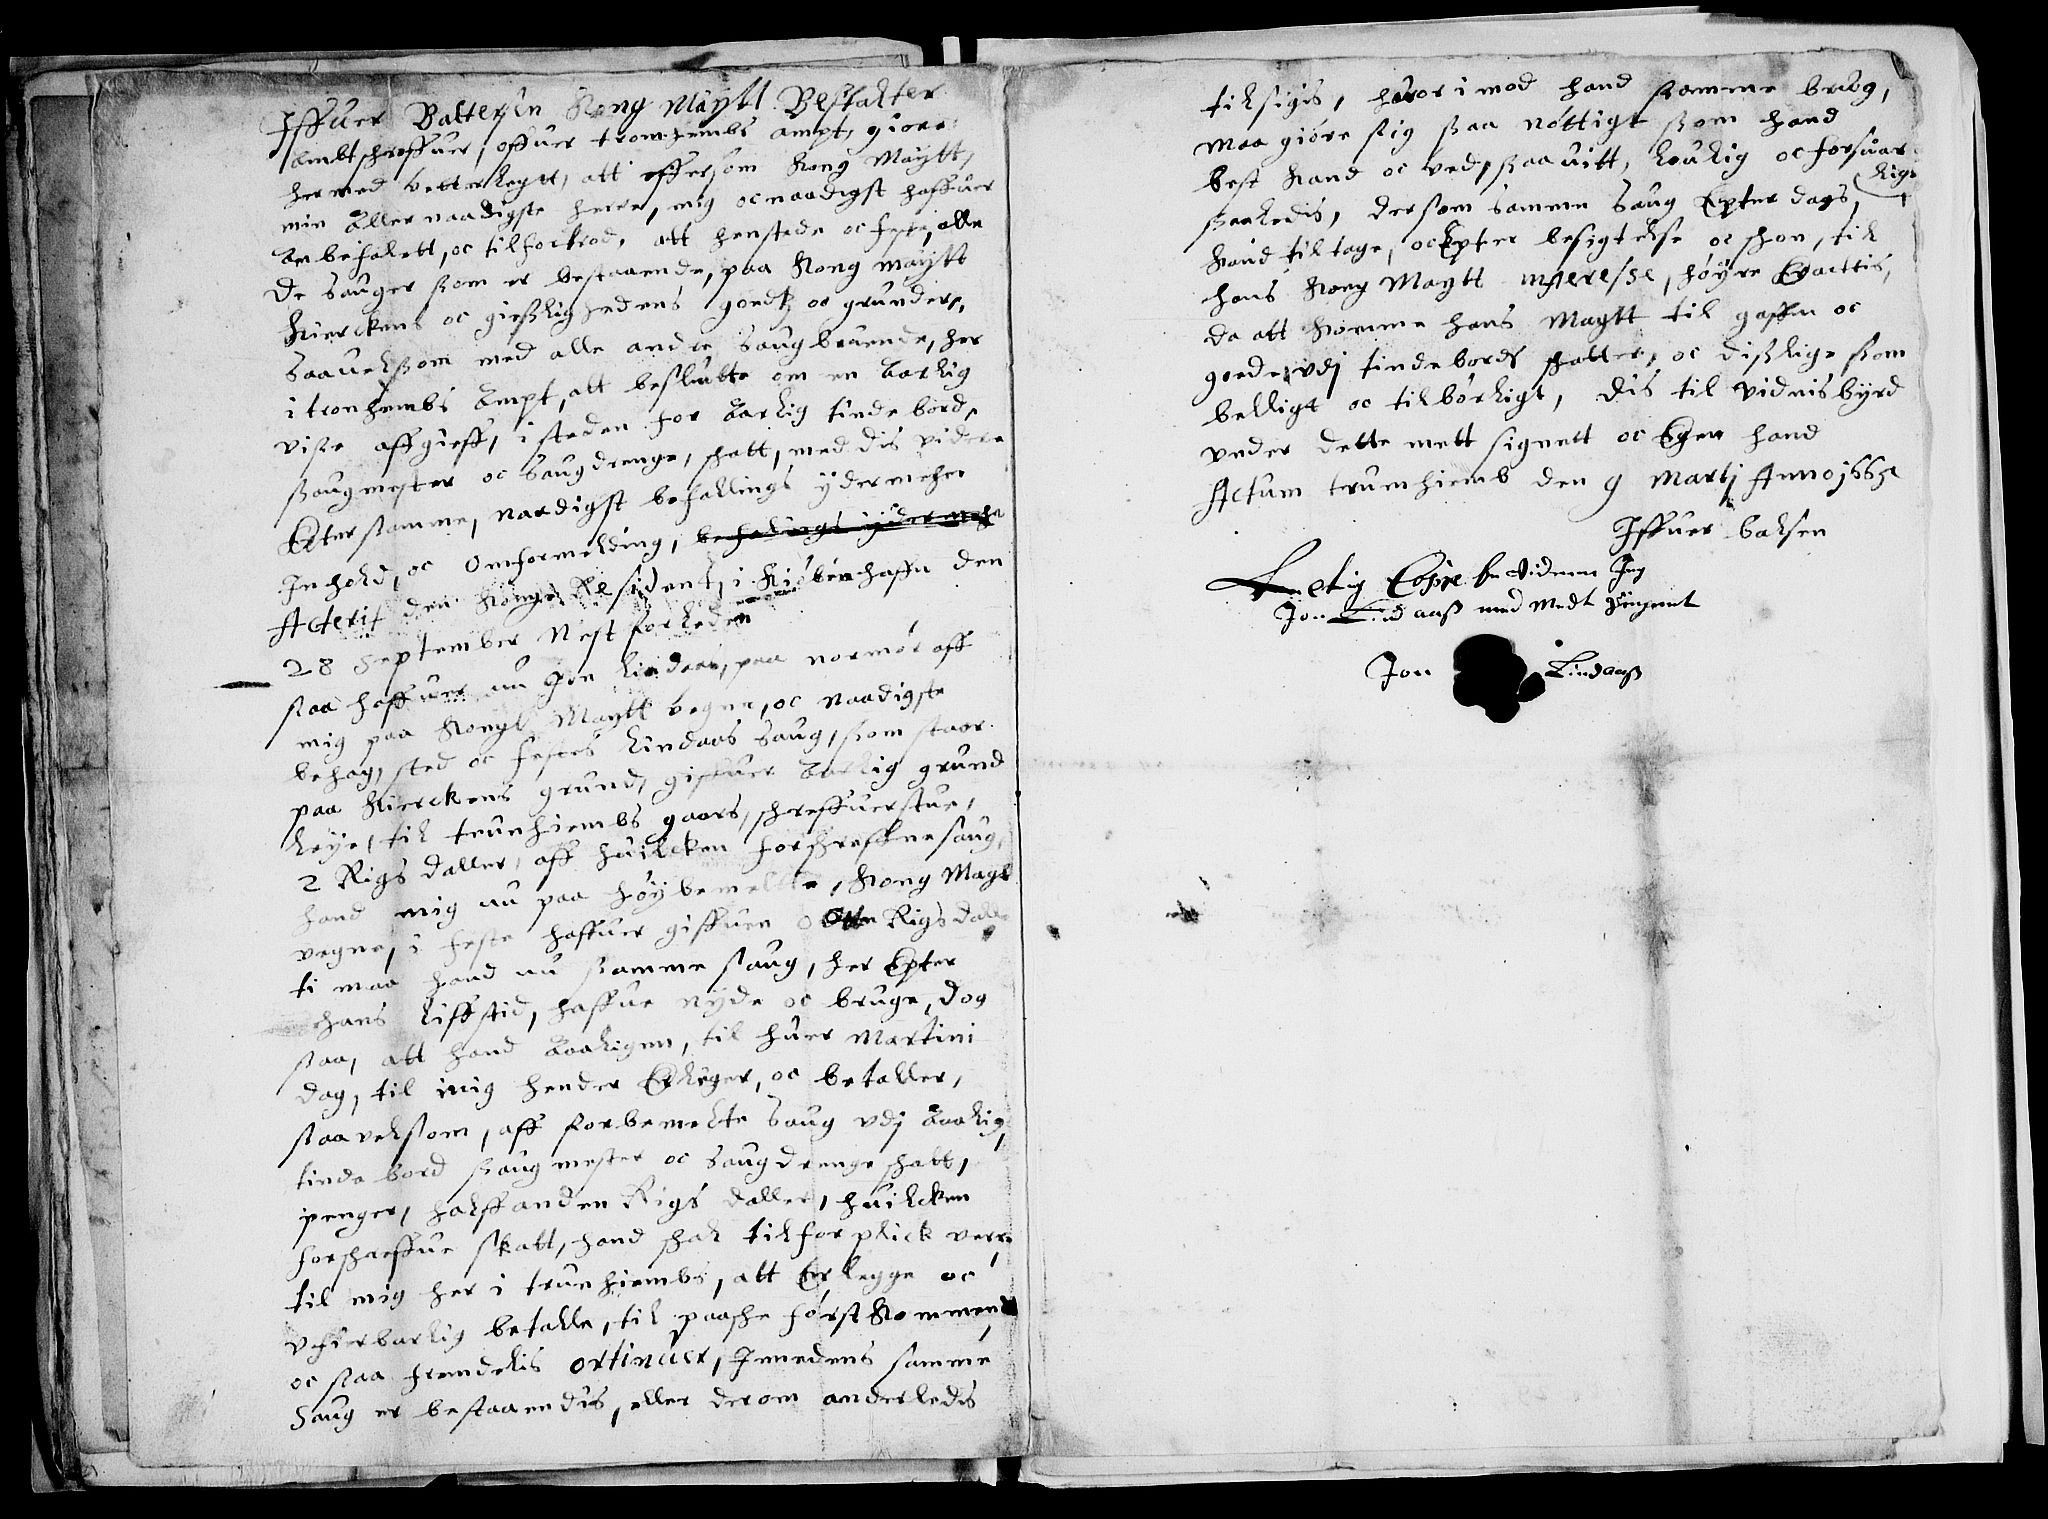 Iffuer Baltersen Kong Maÿtt Bestalter
ambtschriffuer, offuer tronhembs ampt, giøre
hermed vetterligt, att effersom Kong Maÿtt,
min allernaadigste herre, mig oc naadigst haffuer
anbefalett, oc tilfortrod, att henstede oc feste, alle
de sauger som er bestaaende, paa Kong Maÿtt
Kierckens oc gieslighedens goedtz oc grunder,
Saauelsom med alle andre saugbruende, her
i tronhembs ampt, att beslutte om en aarlig
visse affgieff, i steden for aarlig tinde bord,
saugmester oc saugdrenge, schatt, med dis videre
Efter samme, naadigst befallings ÿdermeher
Inhold, oc Omformelding, befalings ÿdermehe
Acterit den Konge Residentz i Kiøbenhaffn den
28 September Nest forleden
saa haffuer nu Jon Lindaas, paa normør aff
mig paa Kongl Maÿtt vegne, oc naadigste
behag, sted oc festes Lindaas saug, som staar
paa Kierckens grund, giffuer aarlig grund
leÿe, til trunhiembs gaars, schreffuerstue,
2 Rigs daller, aff huilcken forschreffne saug,
hand mig nu paa høÿbemelte, Kong Maÿt
vegne, i feste haffuer giffuen Otte Rigsdaller
ti maa hand nu samme saug, her Epter
hans liffstid, haffue nÿde oc bruge, dog
saa, att hand aarligen, til huer Martini
dag, til mig hender Erleger, oc betaller,
saavelsom, aff forbemelte saug vdj aarlig
tinde bord saugmester oc saugdrenge schatt,
penger, halffanden Rigs daller, huilcken
forschreffue skatt, hand schal tilforplict verre
til mig her i trunhiembs, att Erlegge oc
vfferbarlig betalle, til paasche først Kommende
oc saa fremdelis ortinuer, Imedens samme
Saug er bestaaendis, eller derom anderledis
tilsigis, huor i mod hand samme brug,
maa giøre sig saa nøttigt som hand
best Kand oc ved, saauitt, loulig oc forsuar
lige
saaledis, dersom samme saug Epter dags,
Kand tiltage, oc Epter besigtelse oc schøn, til
hans Kong Maÿtt interesse, høÿre Eractis,
da att Komme hans Maÿtt til gaffn oc
goede vdj tindebords schatter, oc disslige som
belligt oc tilbørligt, Dis til vidnisbÿrd
vnder dette mett signett oc Egen hand
Actum trunhiemb den 9 Martj Anno 1665
Iffuer balsen
Retig Copie bevidner Jeg
Jon Lindaass med Mett Singnet
Jon Lindaass